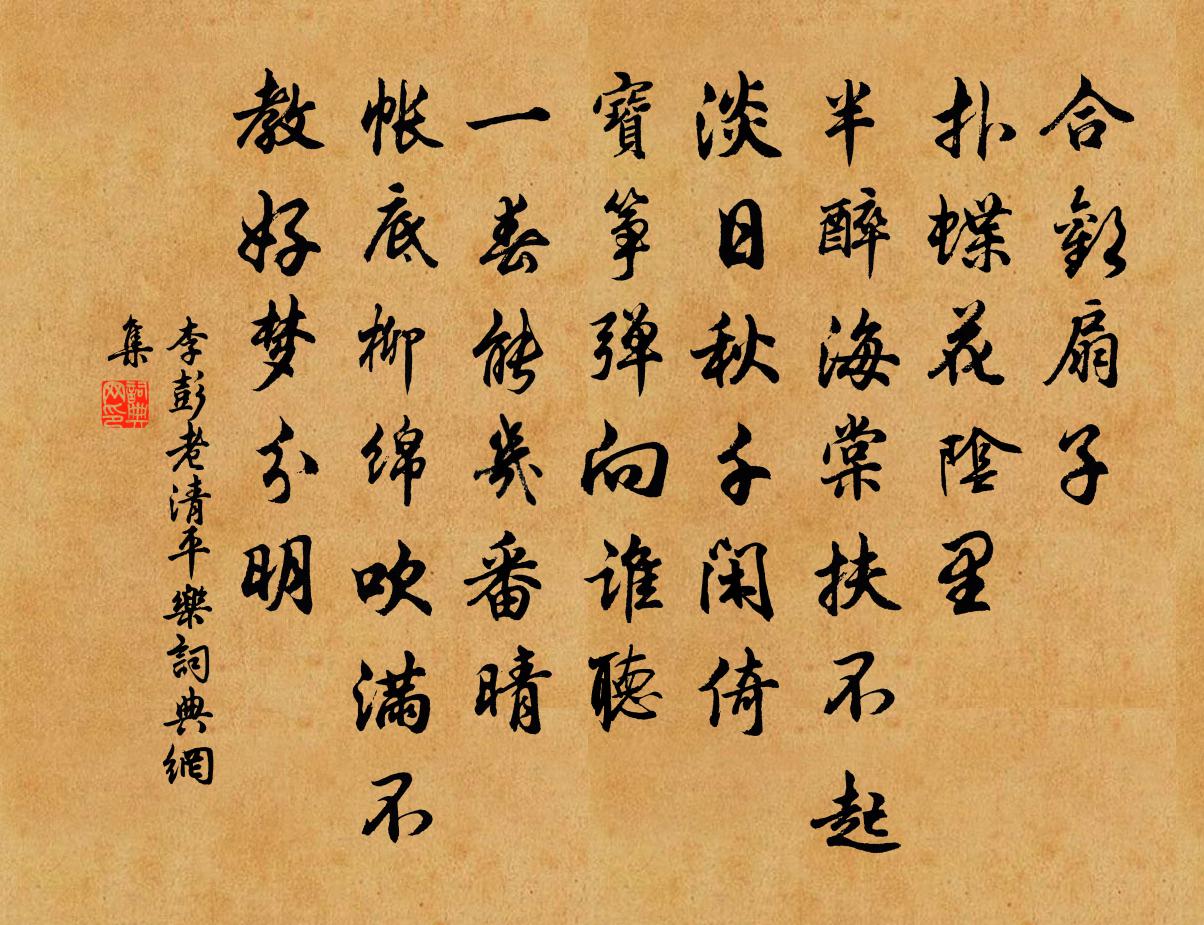 合歡扇子
扑蝶花陰里
半醉海棠扶不起
淡日秋千閑倚
寶箏弹向誰聽
一春能幾番晴
帐底柳绵吹满不
教好梦分明
李彭老清平樂詞典網
集
詞典
网印